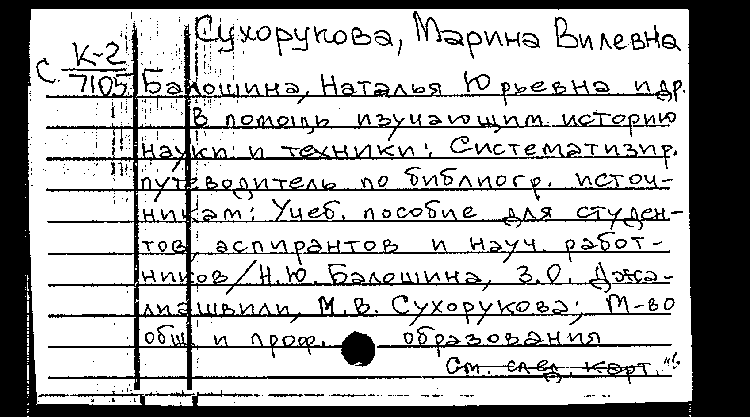 Сухорукова, Марина Вилевна
С К-2
7105
Балошина, Наталья Юрьевна и др.
В помощь изучающим историю
науки и техники: Систематизир.
путеводитель по библиогр. источ-
никам: Учеб. пособие для студен-
тов, аспирантов и науч. работ-
ников/Н.Ю. Балошина, З.О. Джа-
лиашвили, М.В. Сухорукова; М-во
общ. и проф. образования
См. след. карт.